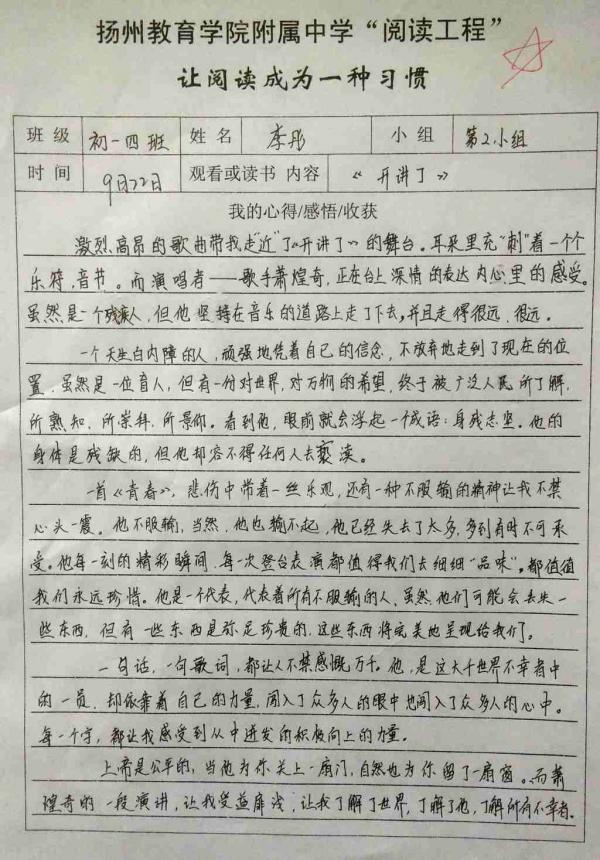 扬州教育学院附属中学“阅读工程”
让阅读成为一种习惯
班级 初一四班 姓名 李彤 小组 第2小组
时间 9月22日 观看或读书 内容 《开讲了》
我的心得/感悟/收获
激烈、高昂的歌曲带我走“近”了《开讲了》的舞台。耳朵里充“刺”着一个个
乐符、音节。而演唱者——歌手萧煌奇,正在台上深情的表达内心里的感受。
虽然是一个残疾人,但他坚持在音乐的道路上走了下去,并且走得很远、很远。
一个天生白内障的人,顽强地凭着自己的信念,不放弃地走到了现在的位
置。虽然是一位盲人,但有一份对世界,对万物的希望,终于被广泛人民所了解,
所熟知、所崇拜、所景仰。看到他,眼前就会浮起一个成语:身残志坚。他的
身体是残缺的,但他却容不得任何人去亵渎。
一首《青春》,悲伤中带着一丝乐观,还有一种不服输的精神让我不禁
心头一震。他不服输,当然,他也输不起,他已经失去了太多,多到有时不可承
受。他每一刻的精彩瞬间、每一次登台表演都值得我们去细细“品味”。都值值
我们永远珍惜。他是一个代表,代表着所有不服输的人、虽然他们可能会去失一
些东西,但有一些东西是弥足珍贵的,这些东西将完美地呈现给我们。
一句话,一句歌词,都让人不禁感慨万千。他,是这大千世界不幸者中
的一员,却依靠着自己的力量,闯入了众多人的眼中也闯入了众多人的心中。
每一个字,都让我感受到从中迸发的积极向上的力量。
上帝是公平的,当他为你关上一扇门,自然也为你留了一扇窗。而萧
煌奇的一段演讲,让我受益匪浅,让我了解了世界,了解了他,了解所有不幸者。